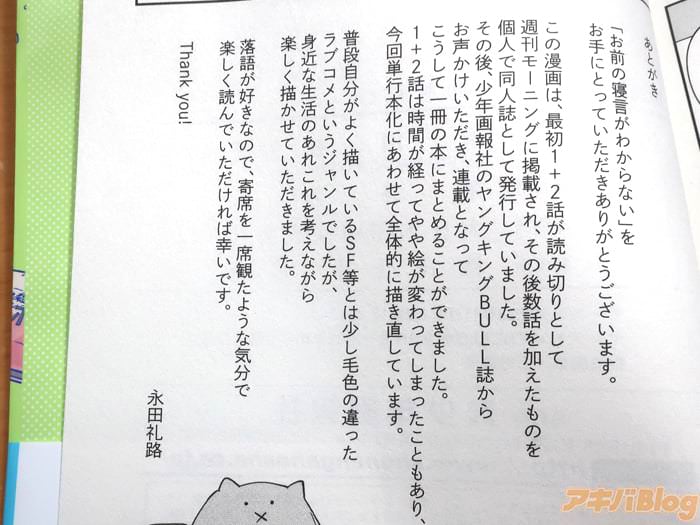 あとがき
「お前の寝言がわからない」を
お手にとっていただきありがとうございます。
この漫画は、最初1+2話が読み切りとして
週刊モーニングに掲載され、その後数話を加えたものを
個人で同人誌として発行していました。
その後、少年画報社のヤングキングBULL誌から
お声かけいただき、連載となって
こうして一冊の本にまとめることができました。
1+2話は時間が経ってやや絵が変わってしまったこともあり、
今回単行本化にあわせて全体的に描き直しています。
普段自分がよく描いているSF等とは少し毛色の違った
ラブコメというジャンルでしたが、
身近な生活のあれこれを考えながら
楽しく描かせていただきました。
落語が好きなので、寄席を一席観たような気分で
楽しく読んでいただければ幸いです。
Thank you!
永田礼路
アキバBlog